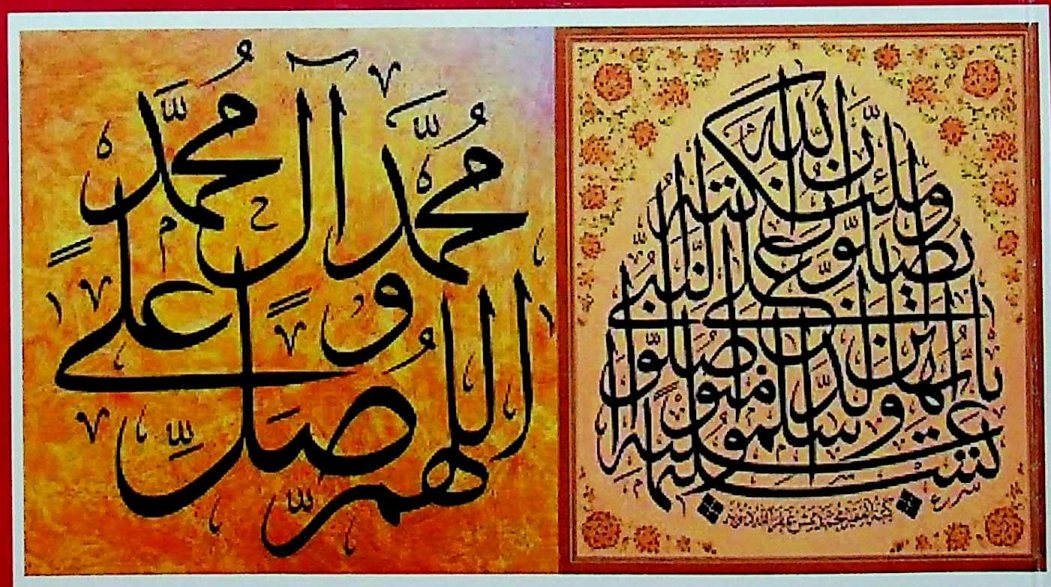 اللهم صل على محمد و آل محمد
إن الله وملئكته يصلون على النبي يا أيها الذين آمنوا صلوا عليه وسلموا تسليما